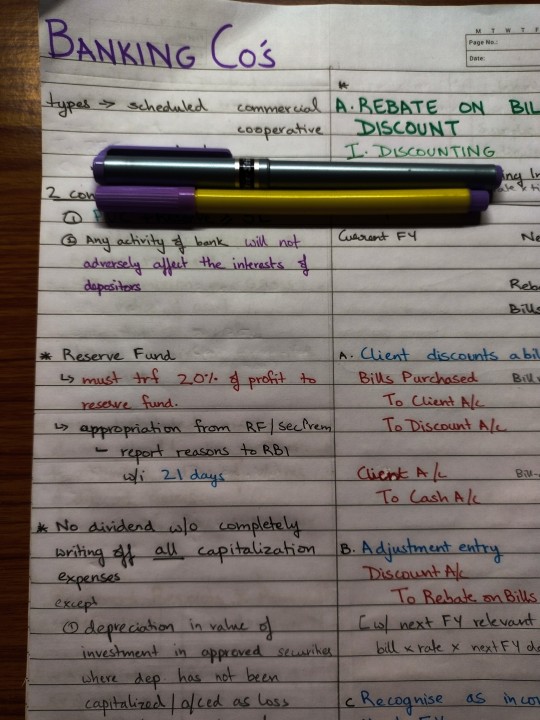 BANKING Co's
M T W T F
Page No.:
Date:
types → scheduled commercial
cooperative
2 con
①
② Any activity of bank will not
adversely affect the interests of
depositors
* Reserve Fund
↳ must trf 20% of profit to
reserve fund.
↳ appropriation from RF/sec Prem
- report reasons to RBI
w/i 21 days
* No dividend w/o completely
writing off all capitalization
expenses
except
① depreciation in value of
investment in approved securities
where dep. has not been
capitalized / a/ced as loss
*
A. REBATE ON BIL
DISCOUNT
I. DISCOUNTING
Current FY
Ne
Reba
Bills
A. Client discounts a bil
Bills Purchased
To Client A/c
To Discount A/c
Client A/c
To Cash A/c
B. Adjustment entry
Discount A/c
To Rebate on Bills
[w/ next FY relevant
bill x rate x next FY da
C Recognise as incom